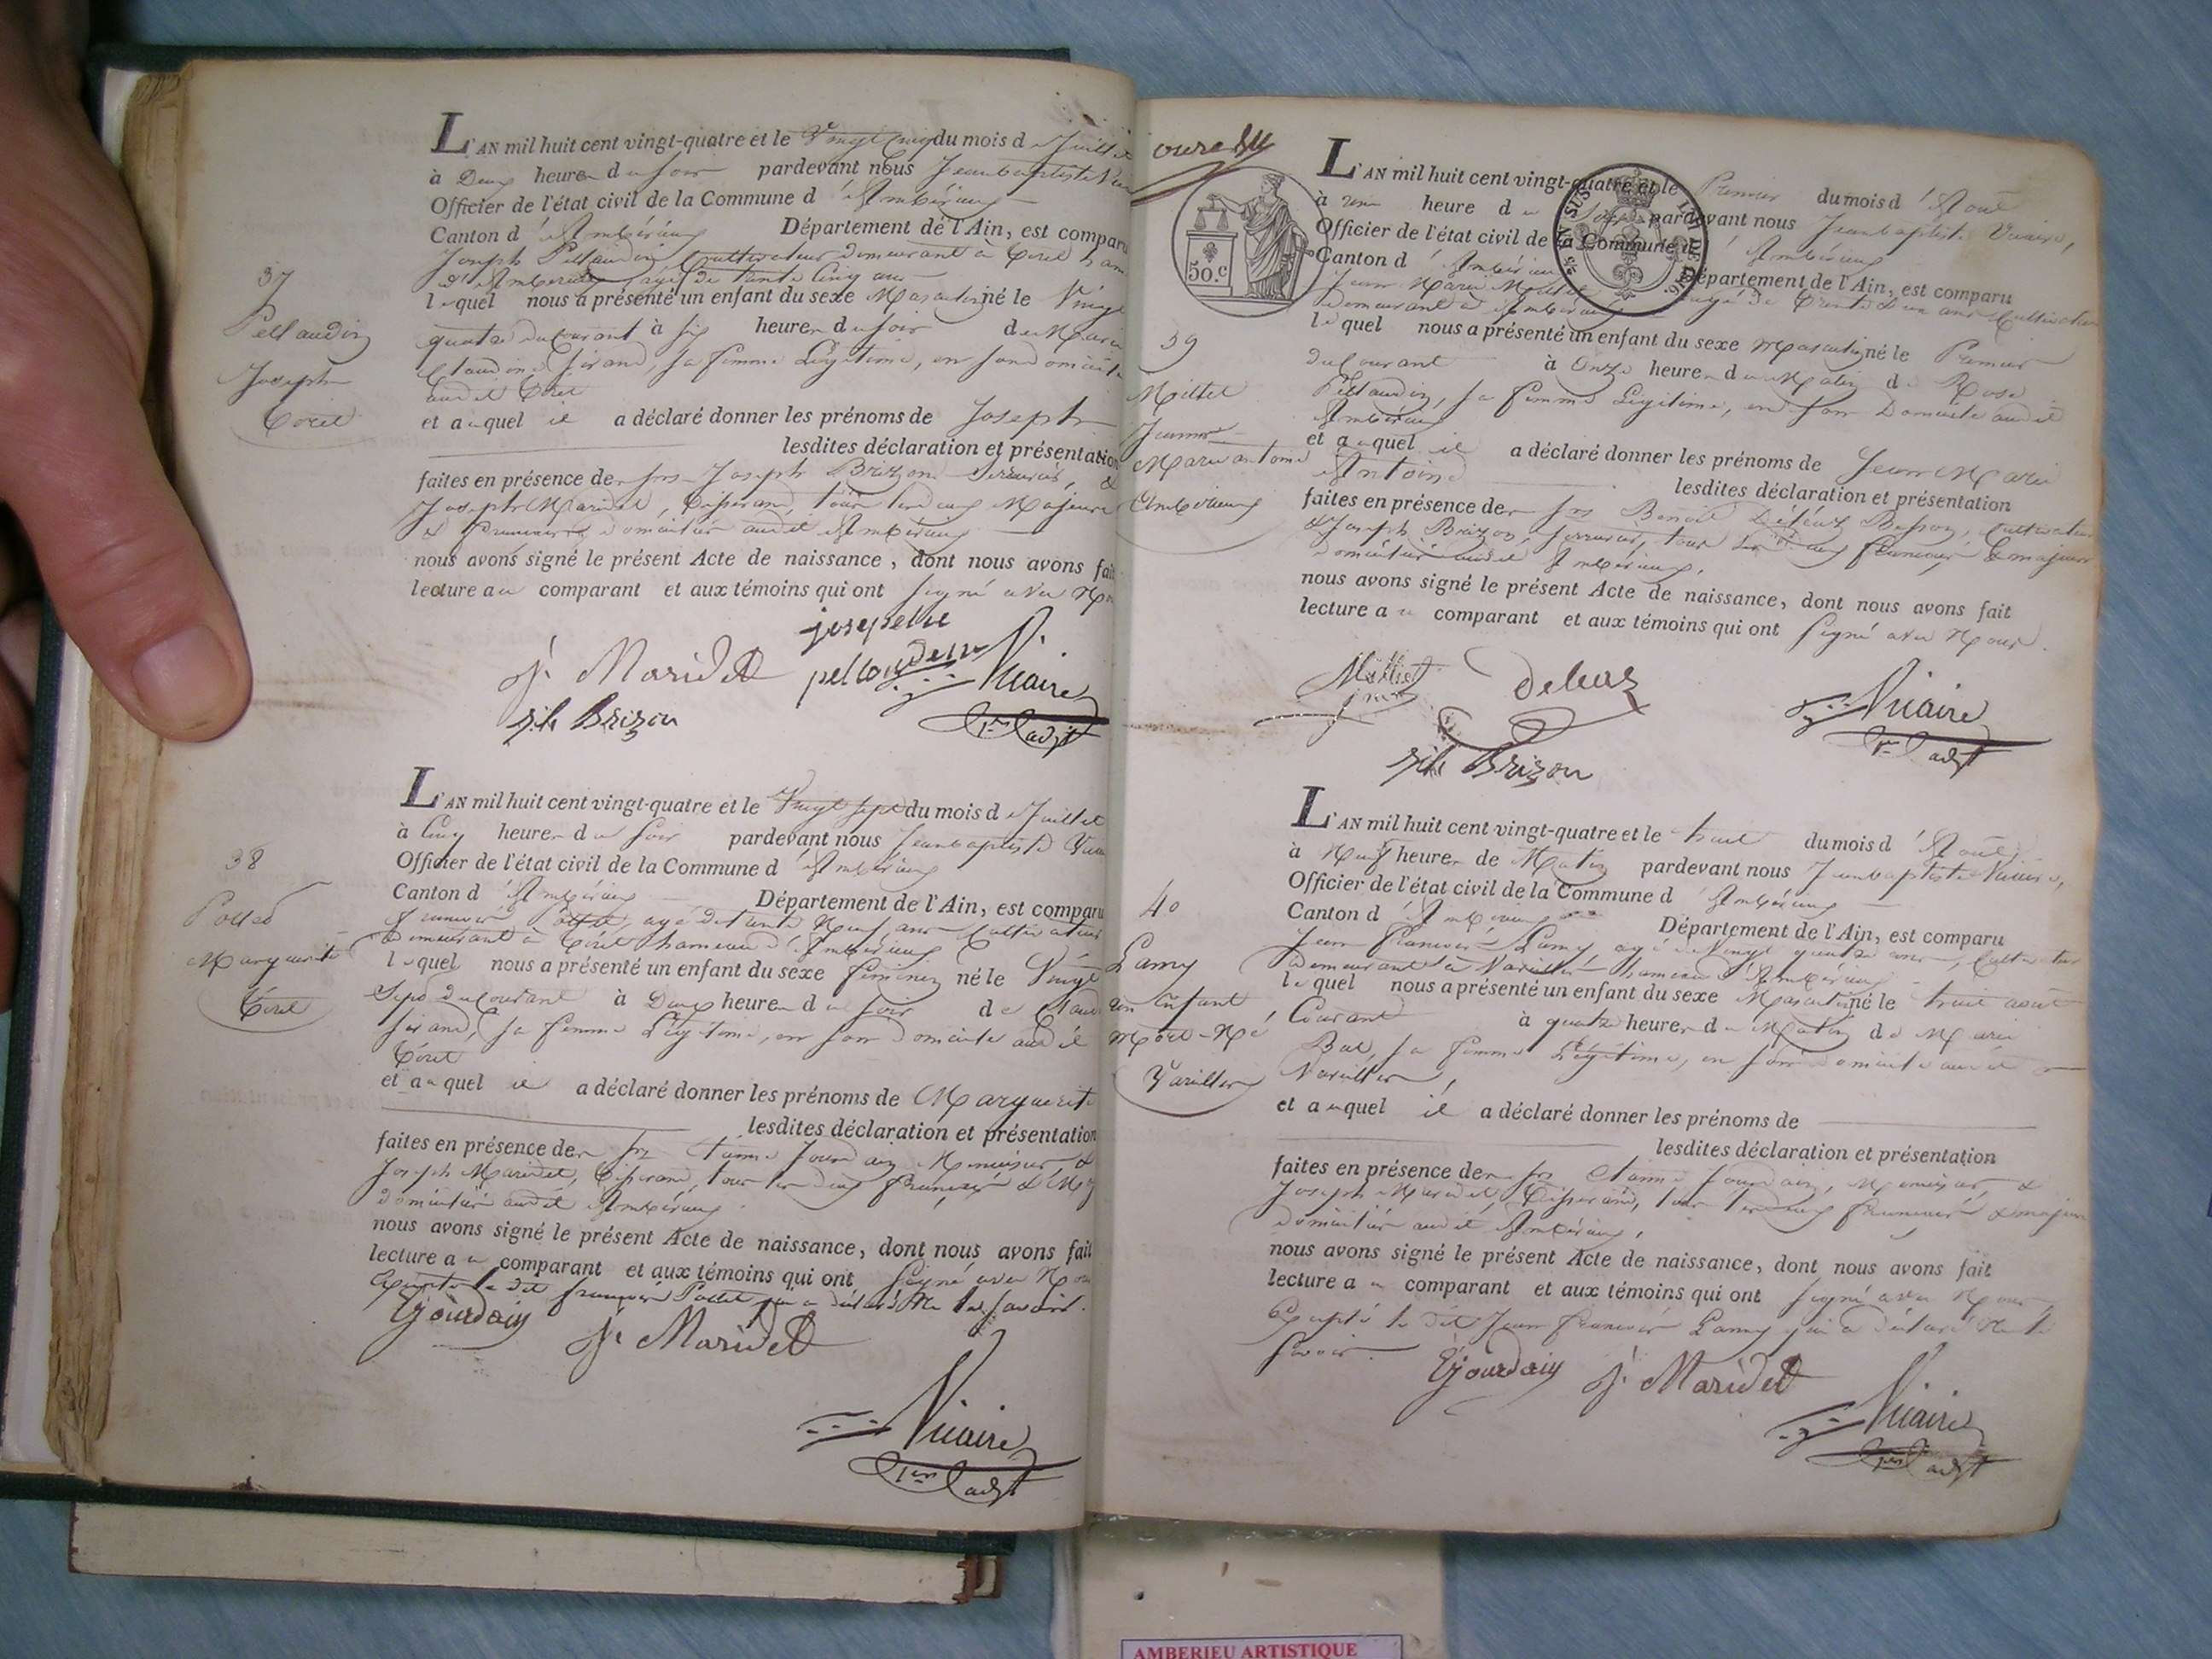 L'AN mil huit cent vingt-quatre et le Vingt Cinq du mois de Juillet
à Deux heures du soir pardevant nous Jeanbaptiste
Officier de l'état civil de la Commune d'Ambérieux
Canton d'Ambérieux Département de l'Ain, est comparu
Joseph Pellaudin Cultivateur demeurant à Tiret
d'Ambérieux, agé de trente Cinq ans
37
lequel nous a présenté un enfant du sexe Masculin né le Vingt
Pellaudin
quatre du Courant à Six heures du soir de Marie
Claudine Sirand, sa femme Légitime, en son domicile
Joseph
audit Tiret
Tiret
et auquel il a déclaré donner les prénoms de Joseph
lesdites déclaration et présentation
faites en présence des srs Joseph Brizon Serrurier, &
Joseph Maridet, Tisserand, tous les deux Majeurs
& français domiciliés audit Ambérieux
nous avons signé le présent Acte de naissance, dont nous avons fait
lecture au comparant et aux témoins qui ont signé avec
josephe
pellaudin
J. Maridet
Vicaire
Brizon
1er adjt
L'AN mil huit cent vingt-quatre et le Vingt Sept du mois de Juillet
à Cinq heures du soir pardevant nous Jeanbaptiste
Officier de l'état civil de la Commune d'Ambérieux
38
Canton d'Ambérieux Département de l'Ain, est comparu
Pottet
françois Pottet, agé de trente Neuf ans Cultivateur
demeurant à Tiret hameau d'Ambérieux
Marguerite
lequel nous a présenté un enfant du sexe féminin né le Vingt
Tiret
Sept du Courant à Deux heures du soir de
Sirand, sa femme Légitime, en son domicile audit
Tiret
et auquel il a déclaré donner les prénoms de Marguerite
lesdites déclaration et présentation
faites en présence des srs Etienne Jourdain Menuisier &
Joseph Maridet, Tisserand, tous les deux français &
domiciliés audit Ambérieux
nous avons signé le présent Acte de naissance, dont nous avons fait
lecture au comparant et aux témoins qui ont signé avec
Excepté le dit françois Pottet qui a déclaré Ne le savoir.
EJourdain
J. Maridet
Vicaire
1er adjt
L'AN mil huit cent vingt-quatre et le Premier du mois d'Aout
50.c
EN SUS
à une heure du soir pardevant nous Jeanbaptiste Vicaire,
Officier de l'état civil de la Commune d'Ambérieux
Canton d'Ambérieux Département de l'Ain, est comparu
Jean Marie Millet agé de trente deux ans Cultivateur
demeurant à Ambérieux
39
lequel nous a présenté un enfant du sexe Masculin né le Premier
du Courant à Onze heures du Matin de Rose
Millet
Pellaudin, sa femme Légitime, en son Domicile audit
Ambérieux
Jean
Marie antoine
et auquel il a déclaré donner les prénoms de Jean Marie
Antoine
lesdites déclaration et présentation
Ambérieux
faites en présence des srs Benoit Besson, Cultivateur
& Joseph Brizon, Serrurier, tous les deux français & majeurs
domiciliés audit Ambérieux,
nous avons signé le présent Acte de naissance, dont nous avons fait
lecture au comparant et aux témoins qui ont signé avec Nous.
Millet
Vicaire
Brizon
1er adjt
L'AN mil huit cent vingt-quatre et le huit du mois d'Aout
à Neuf heures de Matin pardevant nous Jeanbaptiste Vicaire,
Officier de l'état civil de la Commune d'Ambérieux
40
Canton d'Ambérieux Département de l'Ain, est comparu
Jean françois Lamy agé de Vingt quatre ans, Cultivateur
Lamy
demeurant à Vareilles hameau d'Ambérieux
un Enfant
lequel nous a présenté un enfant du sexe Masculin né le huit aout
Courant à quatre heures du Matin de Marie
Mort-Né
sa femme Légitime, en son domicile audit
Vareilles
Vareilles,
et auquel il a déclaré donner les prénoms de
lesdites déclaration et présentation
faites en présence des srs Etienne Jourdain, Menuisier &
Joseph Maridet, Tisserand, tous les deux français & majeurs
domiciliés audit Ambérieux,
nous avons signé le présent Acte de naissance, dont nous avons fait
lecture au comparant et aux témoins qui ont signé avec Nous,
Excepté le dit Jean françois Lamy qui a déclaré Ne le
savoir.
EJourdain
J. Maridet
Vicaire
1er adjt
AMBERIEU ARTISTIQUE